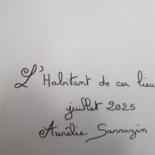 L'Habitant de ces lieu
juillet 2025
Aurélie Sarrazin